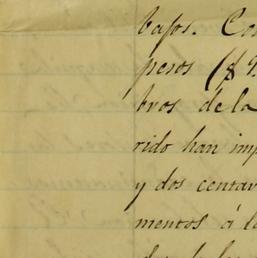 bajos. Co
pesos ($ 9
bros de la
rido han imp
y dos centav
mentos á la